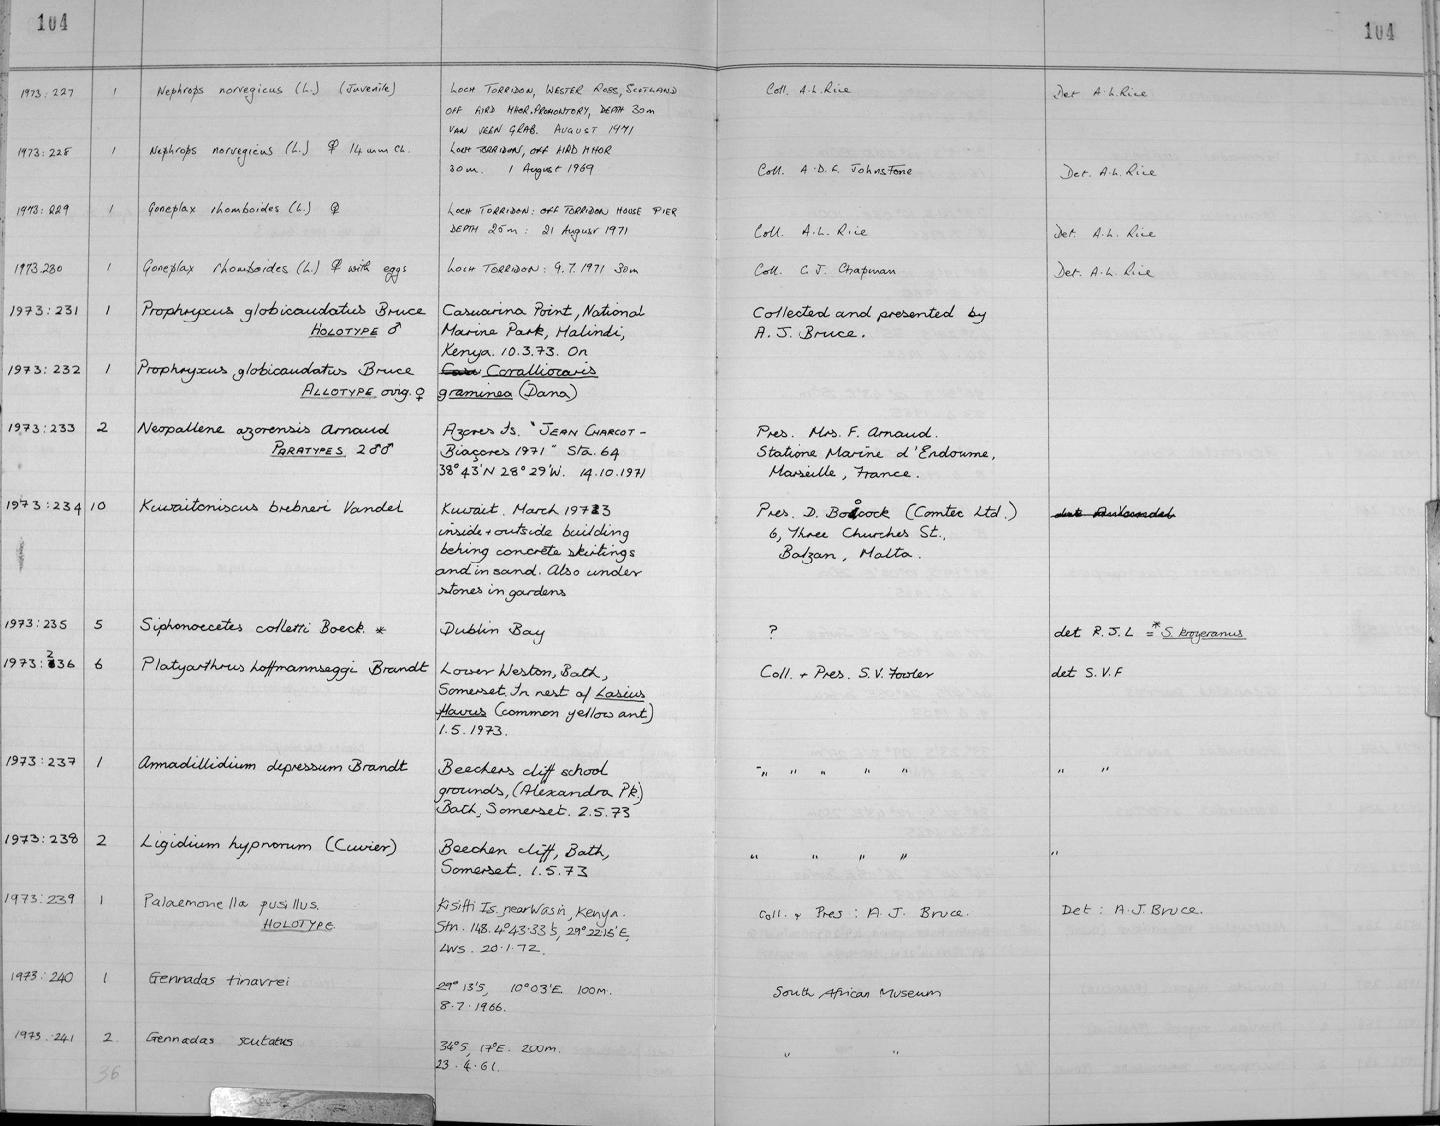 104
104
1973:227 1 Nephrops norvegicus (L.) (Juvenile) Loch Torridon, Wester Ross, Scotland Coll. A.L. Rice Det A.L. Rice
off Aird Mhor. Promontory, Depth 30m
Van Veen Grab. August 1971
1973:228 1 Nephrops norvegicus (L.) ♀ 14mm CL. Loch Torridon, off Aird Mhor
30m. 1 August 1969 Coll. A.D.F. Johnstone Det. A.L. Rice
1973:229 1 Goneplax rhomboides (L.) ♀ Loch Torridon: off Torridon House Pier
Depth 25m: 21 August 1971 Coll. A.L. Rice Det. A.L. Rice
1973.230 1 Goneplax rhomboides (L.) ♀ with eggs Loch Torridon: 9.7.1971 30m Coll. C.J. Chapman Det. A.L. Rice
1973:231 1 Prophryxus globicaudatus Bruce Casuarina Point, National Collected and presented by
HOLOTYPE ♂ Marine Park, Malindi, A.J. Bruce.
Kenya. 10.3.73. On
1973:232 1 Prophryxus globicaudatus Bruce Coralliocaris
ALLOTYPE ovig. ♀ graminea (Dana)
1973:233 2 Neopallene azorensis Arnaud Azores Is. "JEAN CHARCOT - Pres. Mrs. F. Arnaud.
PARATYPES 2♂♂ Biaçores 1971" Sta. 64 Statione Marine d'Endoume,
38°43'N 28°29'W. 14.10.1971 Marseille, France.
1973:234 10 Kuwaitoniscus brebneri Vandel Kuwait. March 1973 Pres. D. Bocock (Comtec Ltd.)
inside + outside building 6, Three Churches St.,
behing concrete skirtings Balzan, Malta.
and in sand. Also under
stones in gardens
1973:235 5 Siphonoecetes colletti Boeck. * Dublin Bay ? det R.J.L = *S. kroyeranus
1973:236 6 Platyarthrus hoffmannseggi Brandt Lower Weston, Bath, Coll. + Pres. S.V. Fowler det S.V.F
Somerset. In nest of Lasius
flavus (common yellow ant)
1.5.1973.
1973:237 1 Armadillidium depressum Brandt Beechers cliff school " " " " " " "
grounds, (Alexandra Pk.)
Bath, Somerset. 2.5.73
1973:238 2 Ligidium hypnorum (Cuvier) Beechen cliff, Bath, " " " " "
Somerset. 1.5.73
1973:239 1 Palaemonella pusillus. Kisitti Is. near Wasin, Kenya. Coll. + Pres: A.J. Bruce. Det: A.J. Bruce.
HOLOTYPE. Stn. 148. 4°43.33'S, 29°22.15'E,
LWS. 20.1.72.
1973:240 1 Gennadas tinayrei 29°13'S, 10°03'E. 100m. South African Museum
8.7.1966.
1973.241 2 Gennadas scutatus 34°S, 17°E. 200m. " "
23.4.61.
36